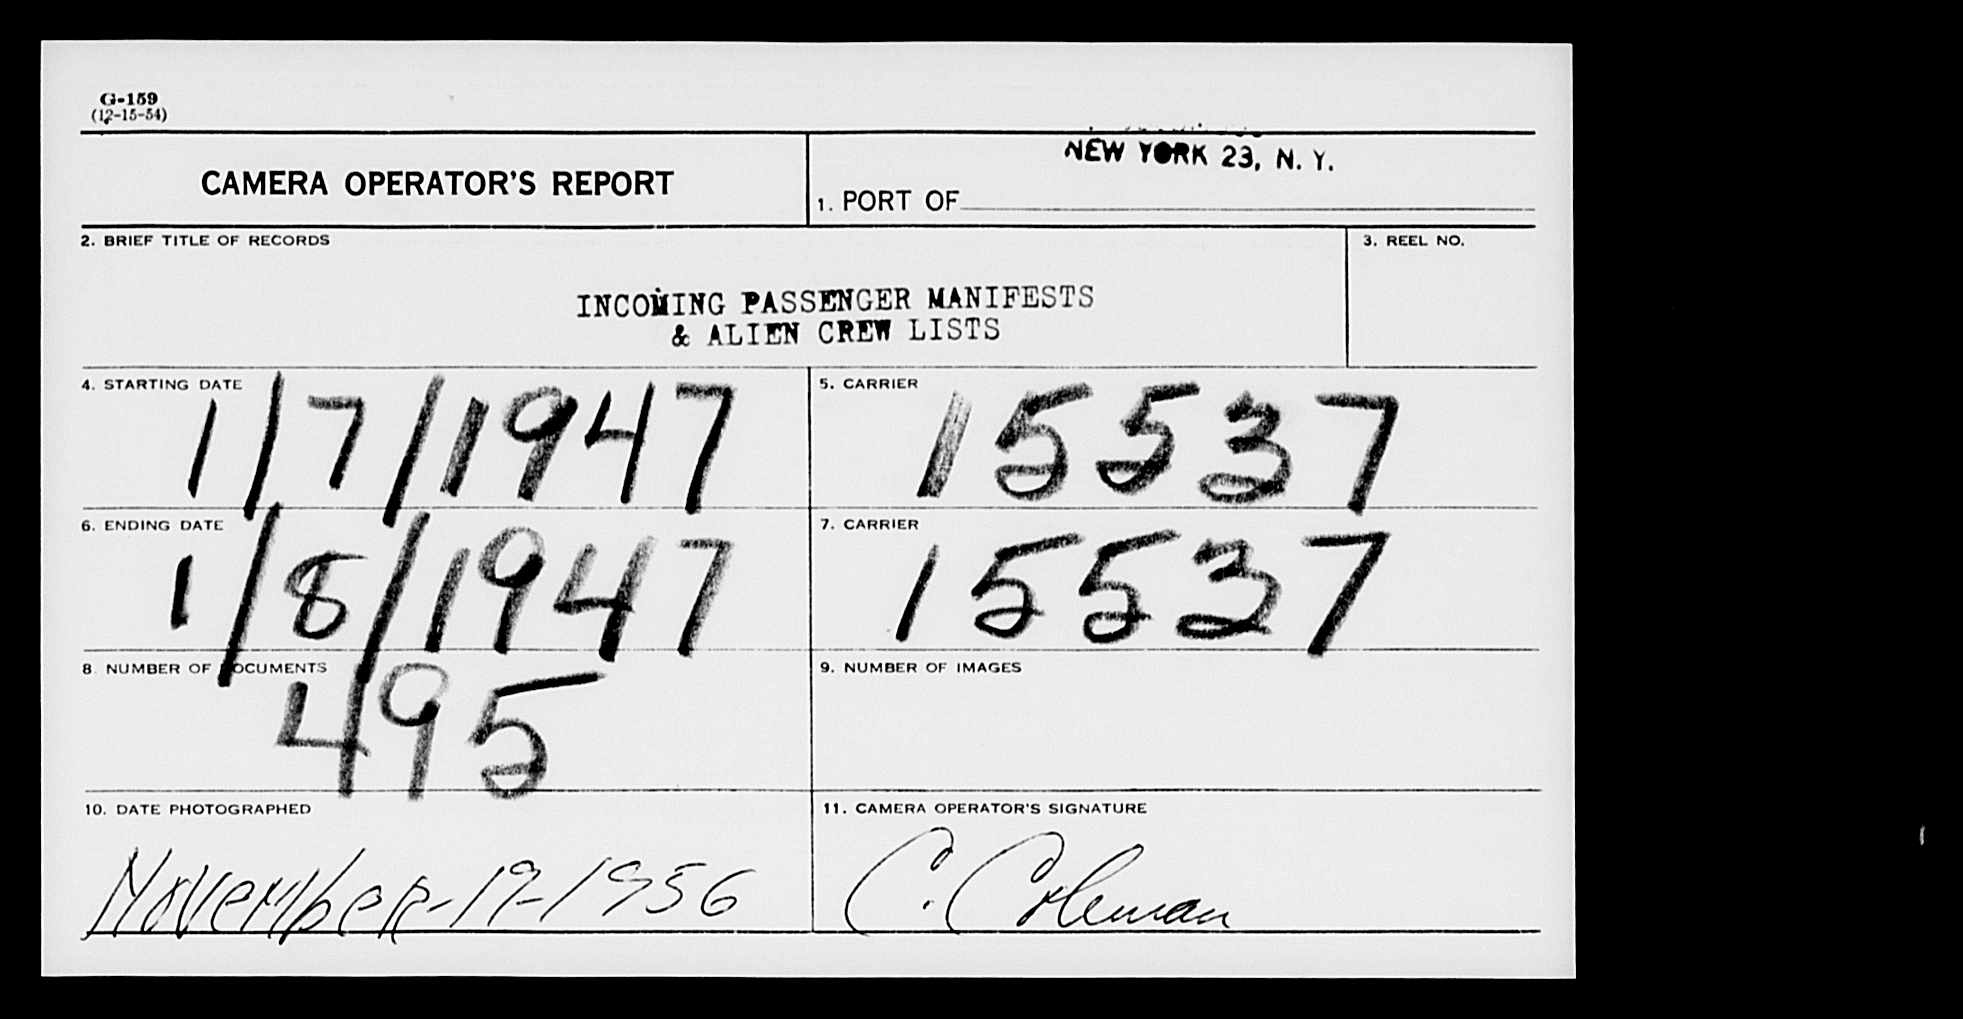 G-159
(12-15-54)
CAMERA OPERATOR'S REPORT
NEW YORK 23, N. Y.
1. PORT OF
2. BRIEF TITLE OF RECORDS
3. REEL NO.
INCOMING PASSENGER MANIFESTS
& ALIEN CREW LISTS
4. STARTING DATE
1/7/1947
5. CARRIER
15537
6. ENDING DATE
1/8/1947
7. CARRIER
15537
8. NUMBER OF DOCUMENTS
495
9. NUMBER OF IMAGES
10. DATE PHOTOGRAPHED
November-19-1956
11. CAMERA OPERATOR'S SIGNATURE
C. Coleman